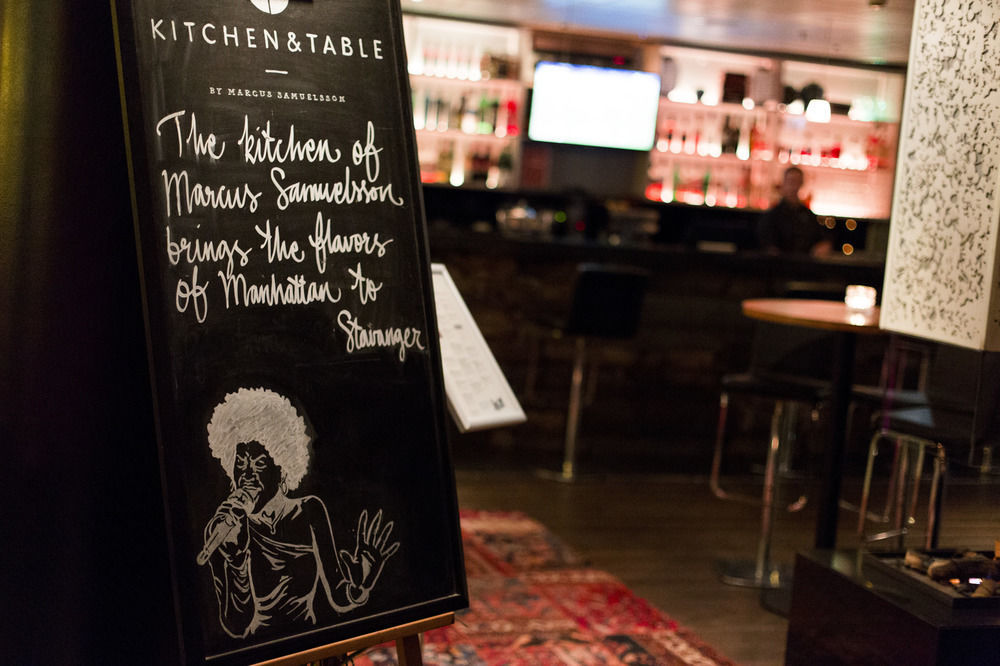 KITCHEN&TABLE
BY MARCUS SAMUELSSON
The kitchen of
Marcus Samuelsson
brings the flavors
of Manhattan to
Stavanger